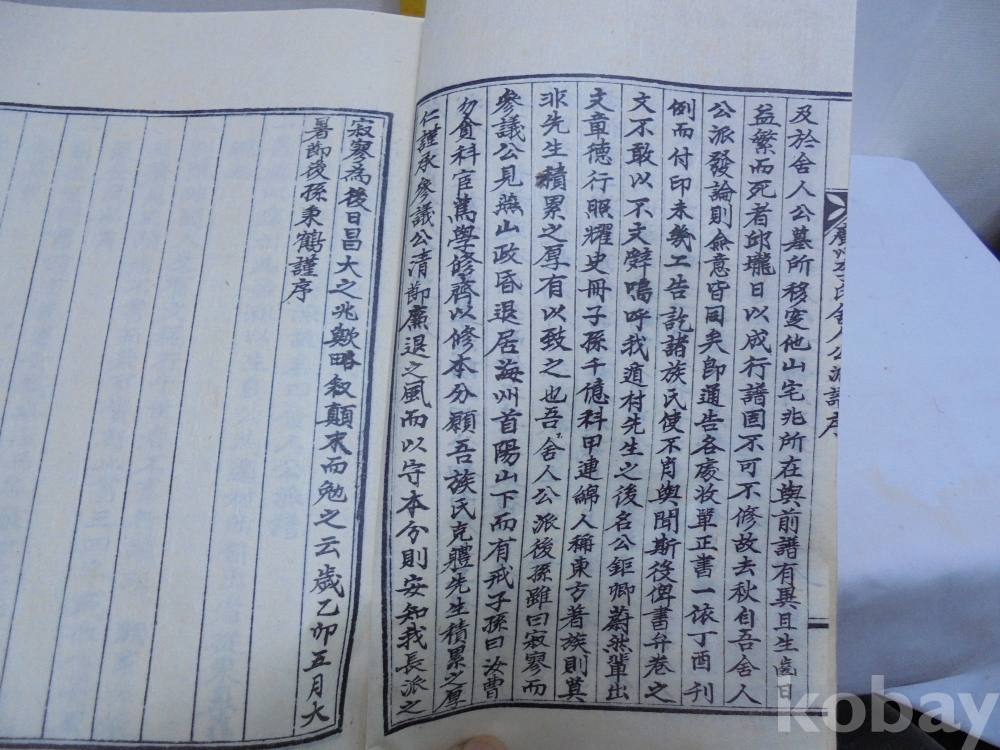 廣州李氏舍人公派譜序
及於舍人公墓所移窆他山宅兆所在與前譜有異且生齒日
益繁而死者邱壠日以成行譜固不可不修故去秋自吾舍人
公派發論則僉意皆同矣卽通告各處收單正書一依丁酉刊
例而付印未幾工告訖諸族氏使不肖與聞斯役俾書弁卷之
文不敢以不文辭嗚呼我遁村先生之後名公鉅卿蔚然輩出
文章德行照耀史冊子孫千億科甲連綿人稱東方著族則莫
非先生積累之厚有以致之也吾舍人公派後孫雖曰寂寥而
參議公見燕山政昏退居海州首陽山下而有戒子孫曰汝曹
勿貪科宦篤學修齊以修本分願吾族氏克軆先生積累之厚
仁謹承參議公清節廉退之風而以守本分則安知我長派之
寂寥為後日昌大之兆歟略叙顛末而勉之云歲乙卯五月大
暑節後孫東鶴謹序
kobay